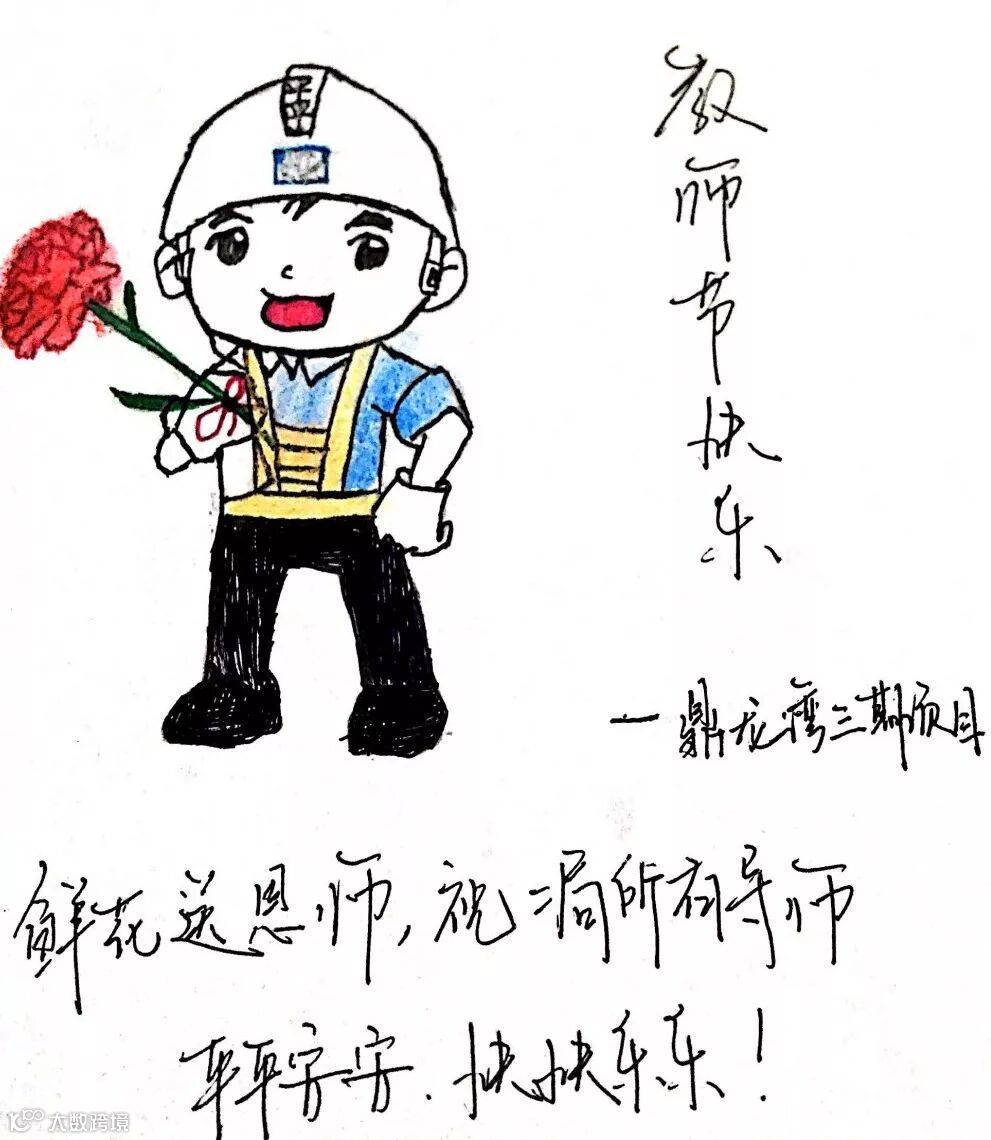 教师节快乐
一鼎龙湾三期项目
鲜花送恩师,祝二局所有导师
平平安安.快快乐乐!
大数跨境